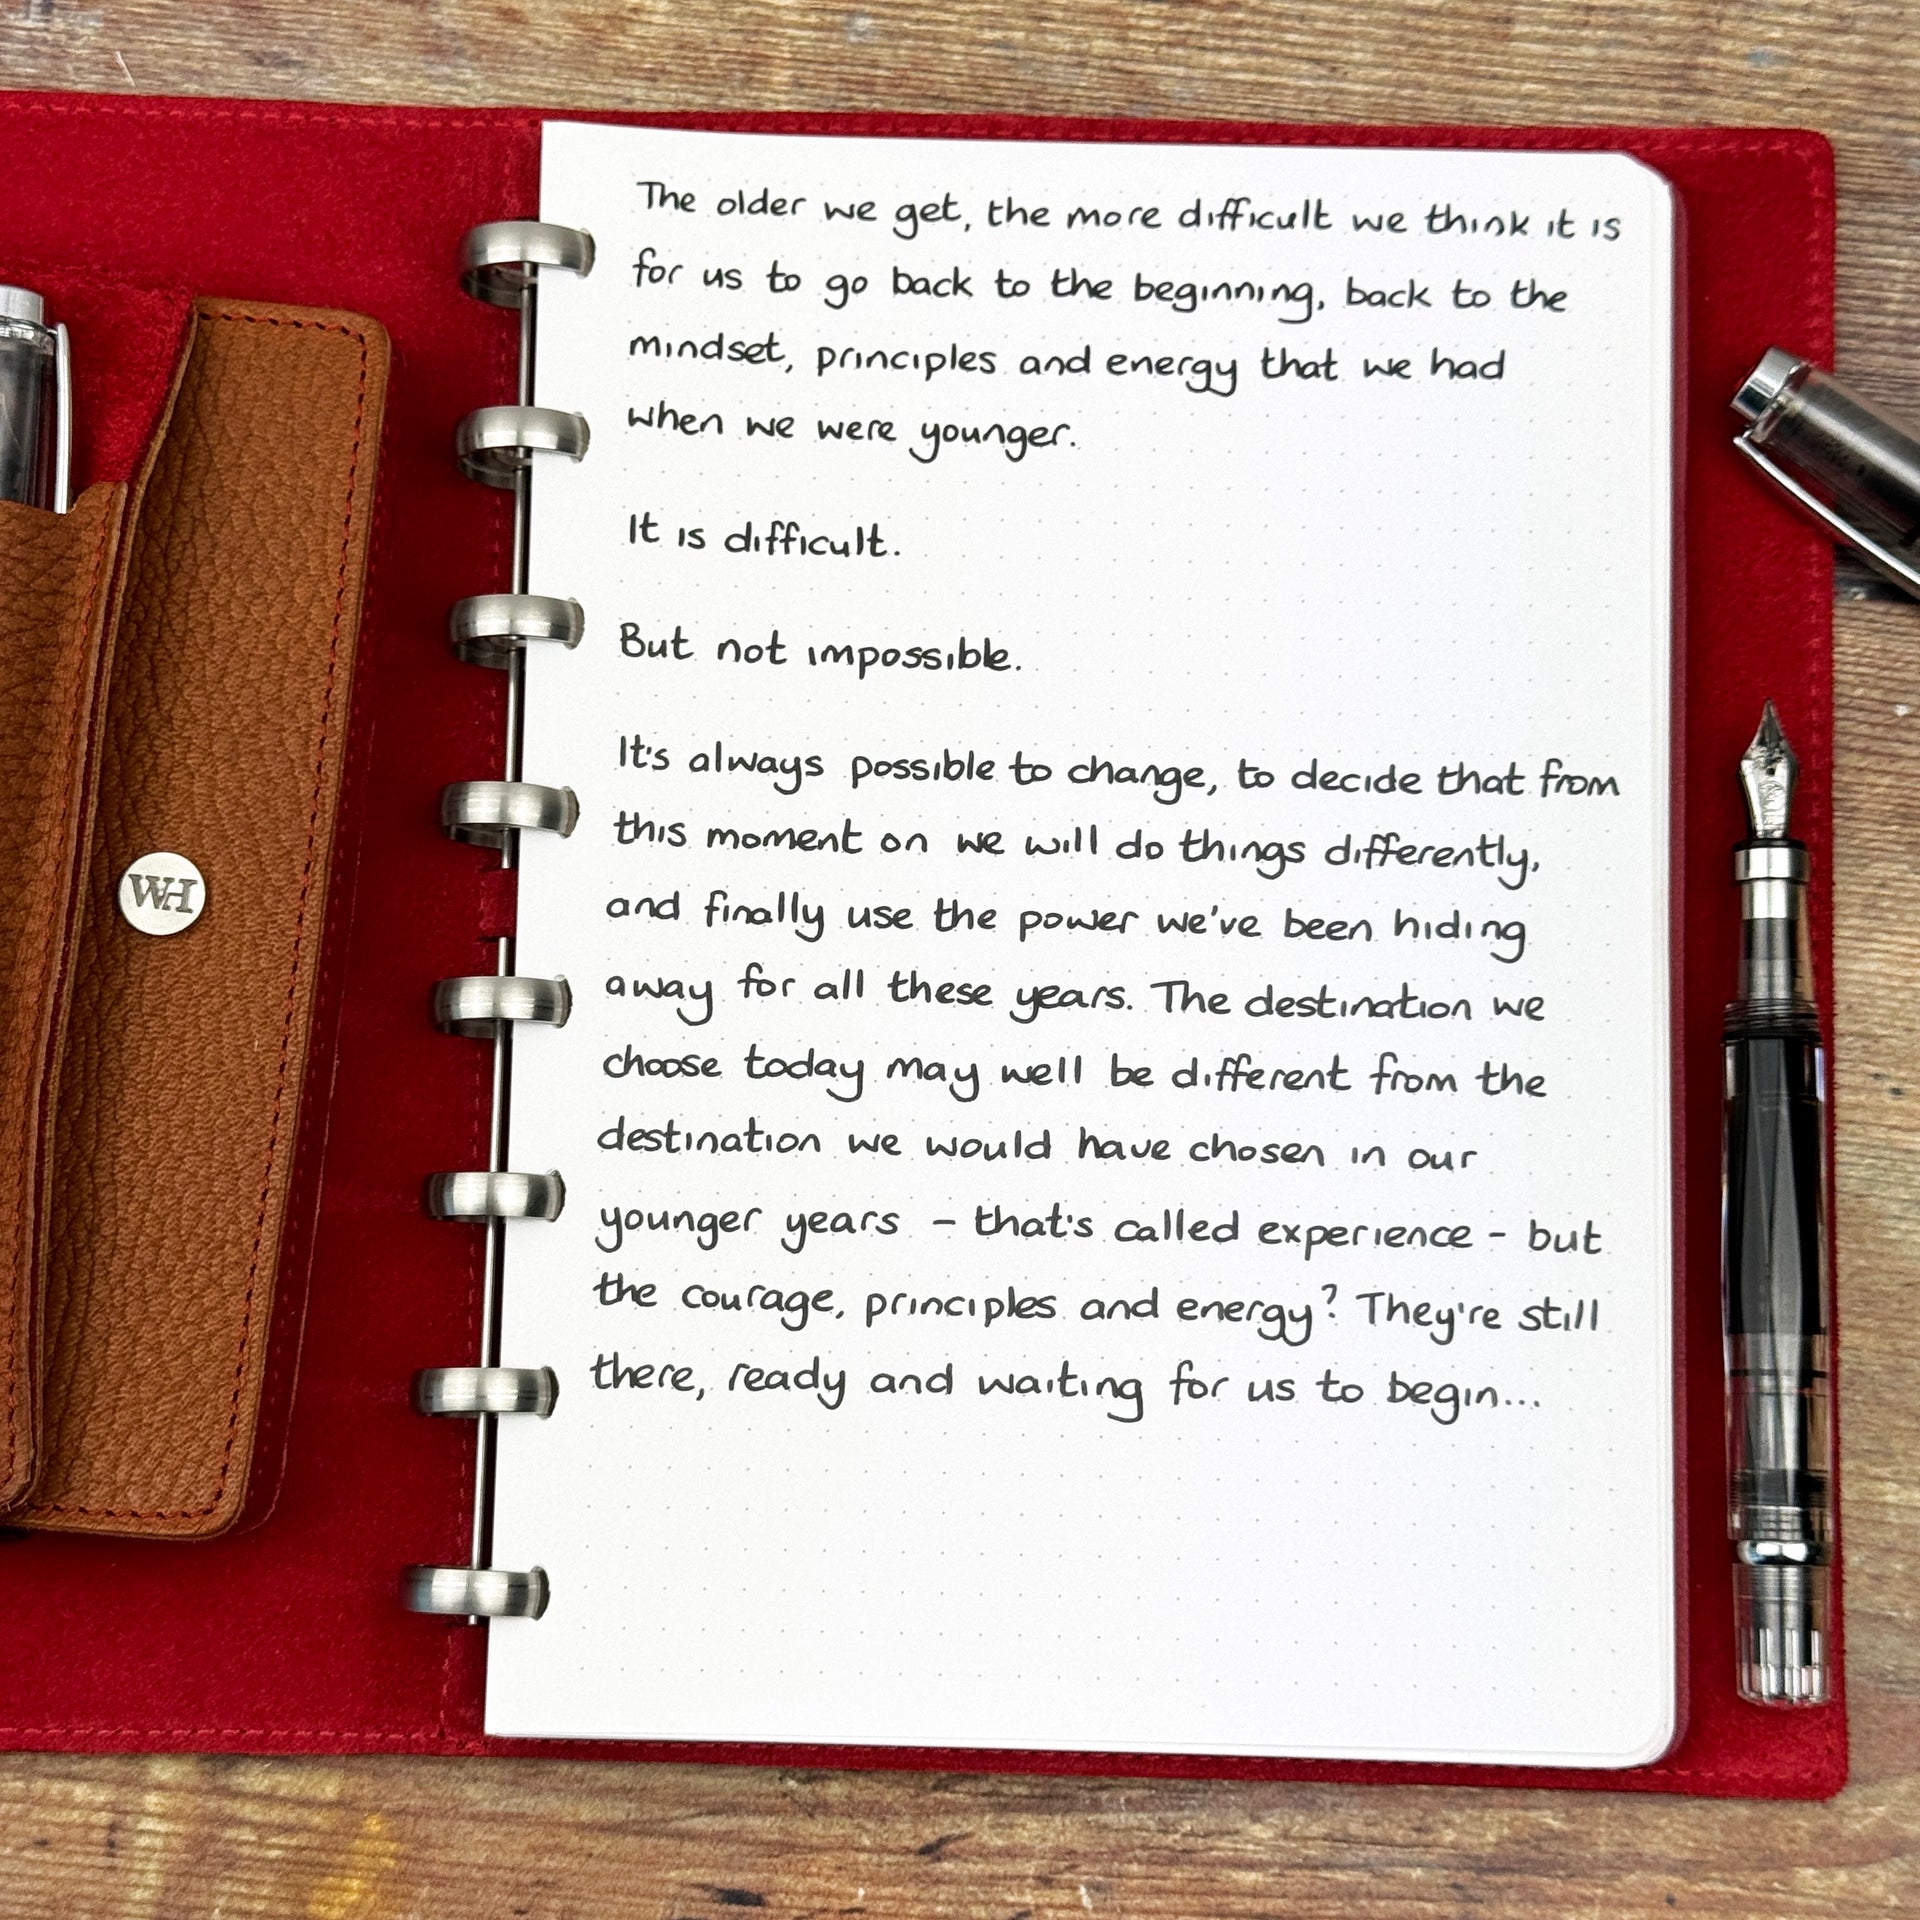 The older we get, the more difficult we think it is
for us to go back to the beginning, back to the
mindset, principles and energy that we had
when we were younger.
It is difficult.
But not impossible.
It's always possible to change, to decide that from
this moment on we will do things differently,
and finally use the power we've been hiding
away for all these years. The destination we
choose today may well be different from the
destination we would have chosen in our
younger years - that's called experience - but
the courage, principles and energy? They're still
there, ready and waiting for us to begin...
WH